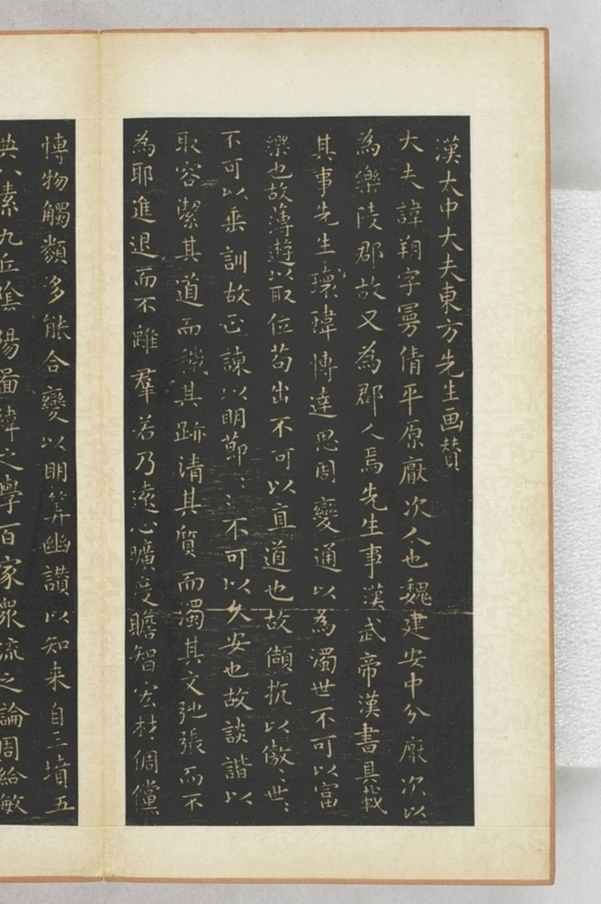 漢大中大夫東方先生画賛
大夫諱朔字曼倩平原厭次人也魏建安中分厭次以
為樂陵郡故又為郡人焉先生事漢武帝漢書具載
其事先生瓌瑋博達思周變通以為濁世不可以富
樂也故薄遊以取位苟出不可以直道也故頡抗以傲〻世〻
不可以垂訓故正諫以明節〻不可以久安也故談諧以
取容潔其道而穢其跡清其質而濁其文弛張而不
為耶進退而不離羣若乃遠心曠度贍智宏材倜儻
博物觸類多能合變以明筭幽讃以知来自三墳五
典八素九丘陰陽圖緯之學百家衆流之論周給敏